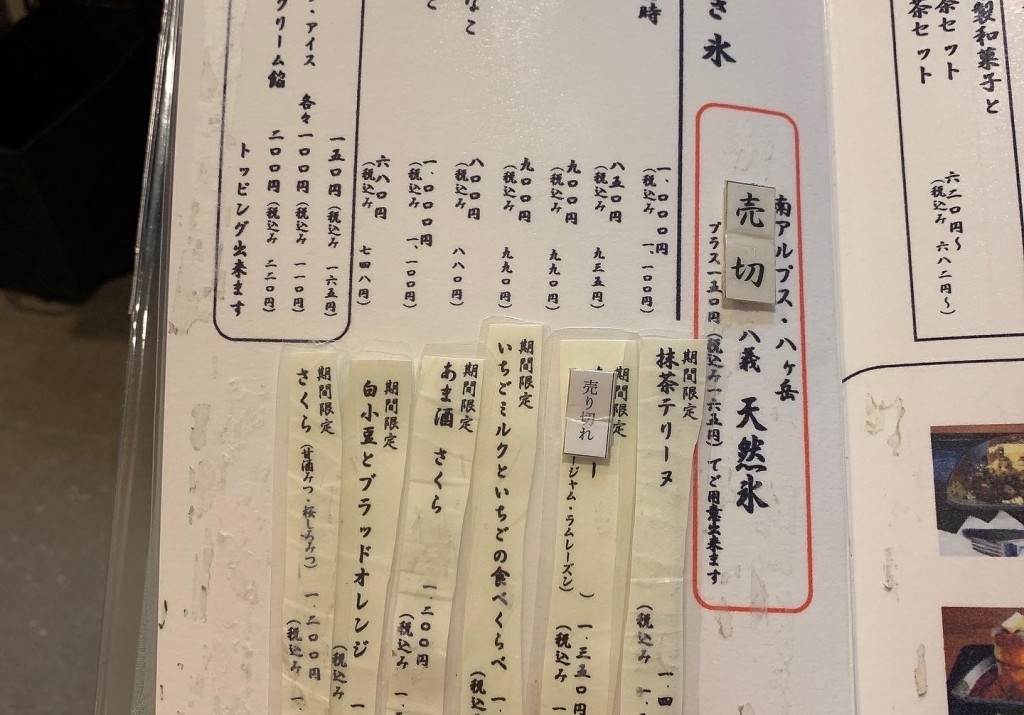 製和菓子と
茶セット
茶セット
六二〇円〜
(税込み 六八二円〜)
南アルプス・八ヶ岳
八義 天然氷
売切
プラス一五〇円(税込み一六五円)でご用意出来ます
さ氷
時
一、〇〇〇円
(税込み 一、一〇〇円)
八五〇円
(税込み 九三五円)
九〇〇円
(税込み 九九〇円)
九〇〇円
(税込み 九九〇円)
八〇〇円
(税込み 八八〇円)
なこ
一、〇〇〇円
(税込み 一、一〇〇円)
六八〇円
(税込み 七四八円)
一五〇円(税込み 一六五円)
・アイス 各々一〇〇円(税込み 一一〇円)
クリーム餡 二〇〇円(税込み 二二〇円)
トッピング出来ます
期間限定
抹茶テリーヌ
(税込み 一、
一、四
期間限定
売り切れ
ージャム・ラムレーズン)
一、三五〇円
(税込み 一、
期間限定
いちごミルクといちごの食べくらべ 一、
(税込
期間限定
あま酒 さくら 一、二〇〇円
(税込み 一、
期間限定
白小豆とブラッドオレンジ 一
(税込み
期間限定
さくら(甘酒みつ・桜しろみつ) 一、二〇〇円
(税込み 一、